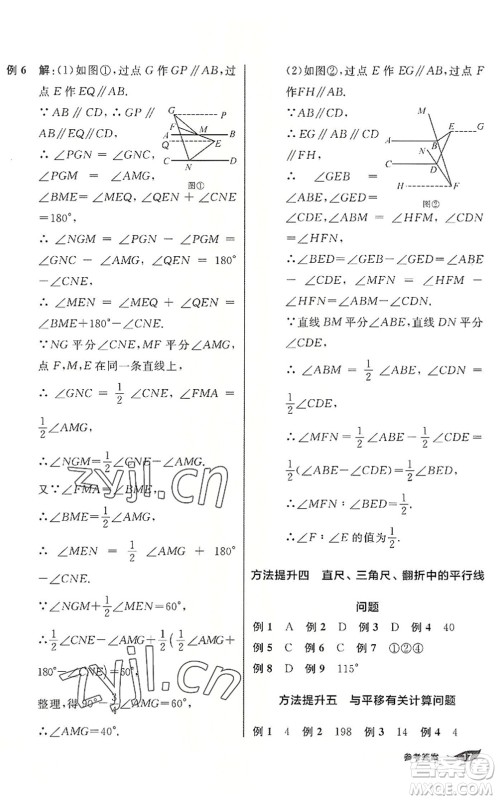 例 6 解:(1)如图①,过点 G 作 GP∥AB,过
点 E 作 EQ∥AB.
∵AB∥CD,∴GP∥AB
∥CD,EQ∥AB∥CD.
G P
F M
A B
Q E
C N D
图①
∴∠PGN=∠GNC,
∠PGM=∠AMG,
∠BME=∠MEQ,∠QEN+∠CNE=
180°,
∴∠NGM=∠PGN-∠PGM=
∠GNC-∠AMG,∠QEN=180°
-∠CNE,
∴∠MEN=∠MEQ+∠QEN=
∠BME+180°-∠CNE.
∵NG平分∠CNE,MF平分∠AMG,
点F,M,E在同一条直线上,
∴∠GNC=1/2∠CNE,∠FMA=
1/2∠AMG,
∴∠NGM=1/2∠CNE-∠AMG.
又∵∠FMA=∠BME,
∴∠BME=1/2∠AMG,
∴∠MEN=1/2∠AMG+180°-
∠CNE)=60°,
整理,得3/2∠AMG=60°,
∴∠AMG=40°.
(2)如图②,过点 E 作 EG∥AB,过点 F
作FH∥AB.
∵AB∥CD,
∴EG∥AB∥CD
∥FH,
M E G
A B
N D
H F
图②
∴∠GEB=
∠ABE,
∠ABM=∠HFM,∠CDN=
∠HFN,
∴∠BED=∠GEB-∠GED=
∠ABE-∠CDE,
∴∠MFN=∠HFM-∠HFN=
∠ABM-∠CDN.
∵直线BM平分∠ABE,直线DN平分
∠CDE,
∴∠ABM=1/2∠ABE,∠CDN=
1/2∠CDE,
∴∠MFN=1/2∠ABE-1/2∠CDE=
1/2(∠ABE-∠CDE)=1/2∠BED,
∴∠MFN∶∠BED=1/2.
∴∠F∶∠E的值为1/2.
方法提升四 直尺、三角尺、翻折中的平行线
问题
例 1 A 例 2 D 例 3 D 例 4 40
例 5 C 例 6 C 例 7 ①②④
例 8 D 例 9 115°
方法提升五 与平移有关计算问题
例 1 4 例 2 198 例 3 14 例 4 4
参考答案 17
zyjl.cn